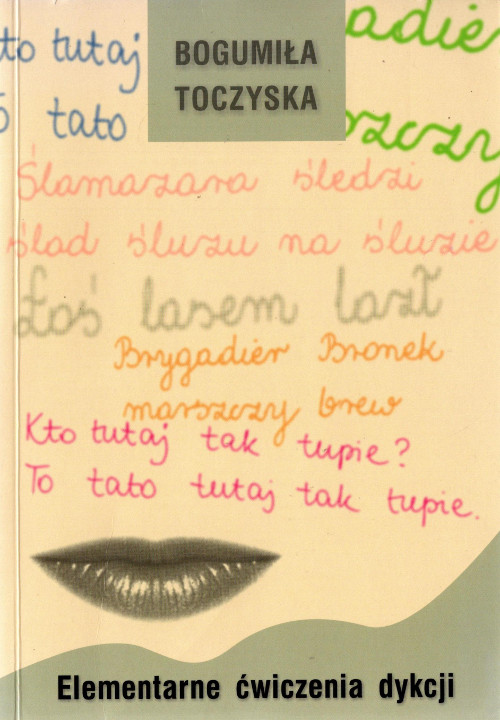 to tutaj
BOGUMIŁA
adie
TOCZYSKA
tato
szczy
Ślamazara śledzi
ślad śluzu na śluzie
Łoś lasem lazł
Brygadier Bronek
marszczy brew
Kto tutaj tak tupie?
To tato tutaj tak tupie.
Elementarne ćwiczenia dykcji